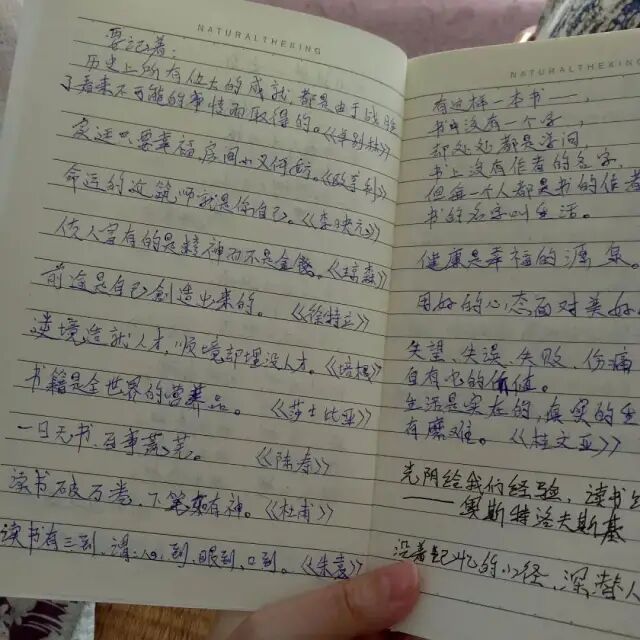 NATURALTHEKING
要记着:
历史上所有伟大的成就,都是由于战胜
了看来不可能的事情而取得的。《卓别林》
只要幸福,房间小又何妨。
命运的建筑师就是你自己。
使人富有的是精神而不是金钱。
前途是自己创造出来的。《徐特立》
逆境造就人才,顺境却埋没人才。
书籍是全世界的营养品。《莎士比亚》
一日无书,百事荒芜。《陈寿》
读书破万卷,下笔如有神。《杜甫》
读书有三到,谓:心到,眼到,口到。《朱熹》
NATURALTHEKING
有这样一本书——,
书中没有一个字,
却处处都是学问,
书上没有作者的名字,
但每一个人都是书的作者
书的名字叫生活。
健康是幸福的源泉。
用好的心态面对美好
失望、失误、失败、伤痛
自有它的价值。
生活是实在的,真实的生
有磨难。
光阴给我们经验,读书
——奥斯特洛夫斯基
沿着记忆的小径,深替人